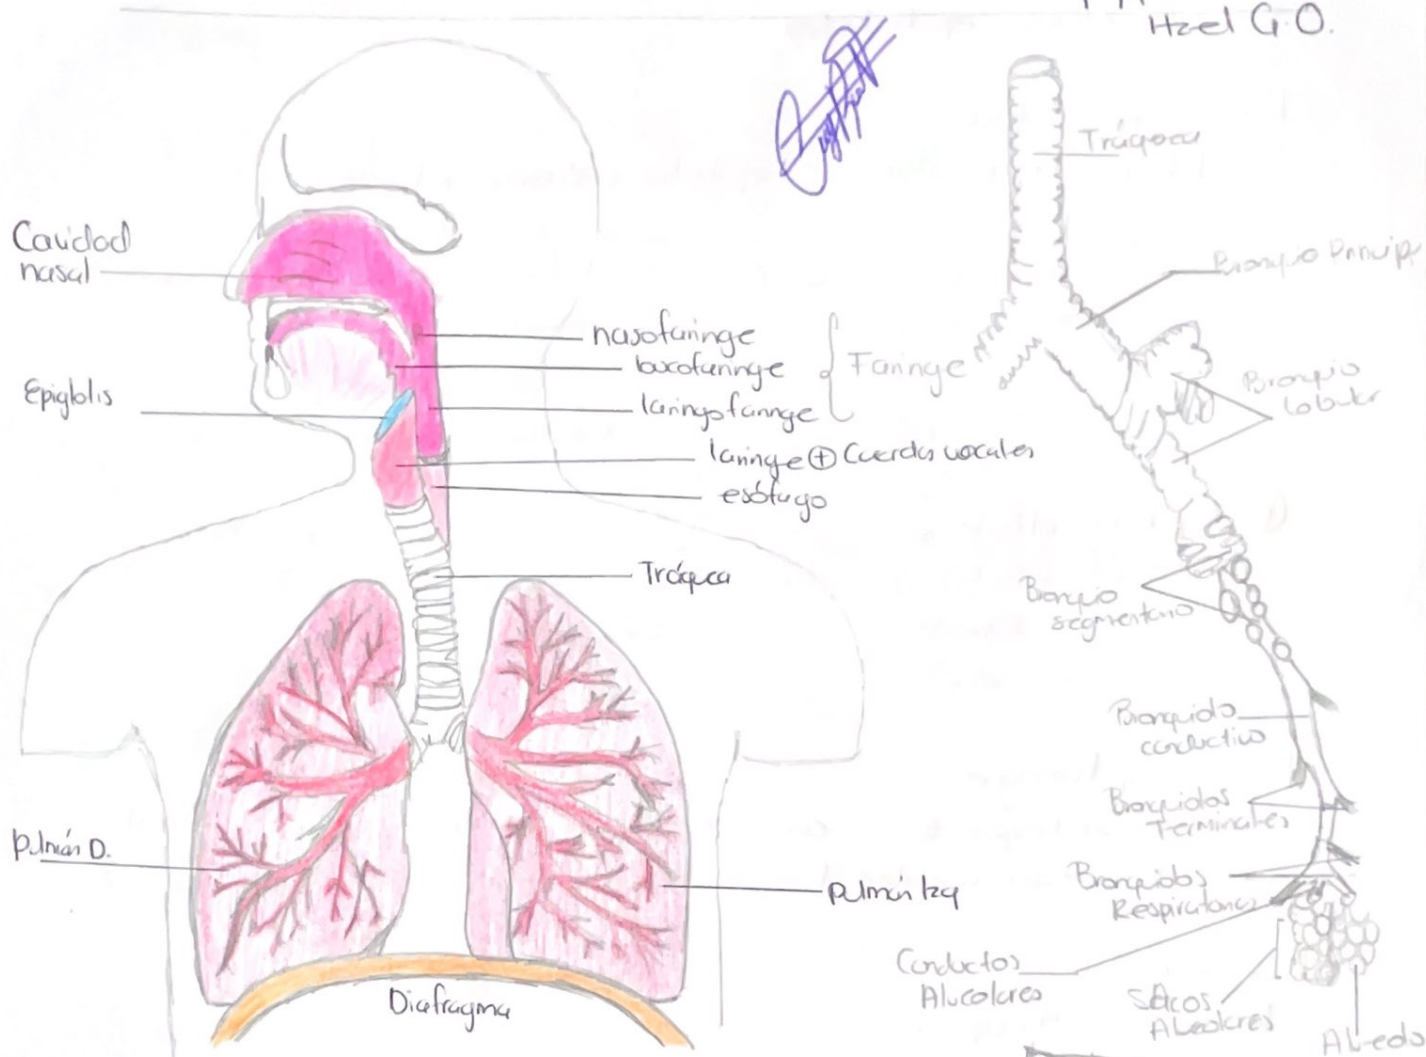 Hzel G.O.
Cavidad
nasal
Epiglotis
nasofaringe
bucofaringe
laringofaringe
Faringe
laringe + Cuerdas vocales
esófago
Tráquea
pulmón D.
pulmón Izq
Diafragma
Tráquea
Bronquio Princip
Bronquio
Lobular
Bronquio
segmentario
Bronquiolo
conductivo
Bronquiolos
Terminales
Bronquiolos
Respiratorios
Conductos
Alveolares
Sacos
Alveolares
Alveolo